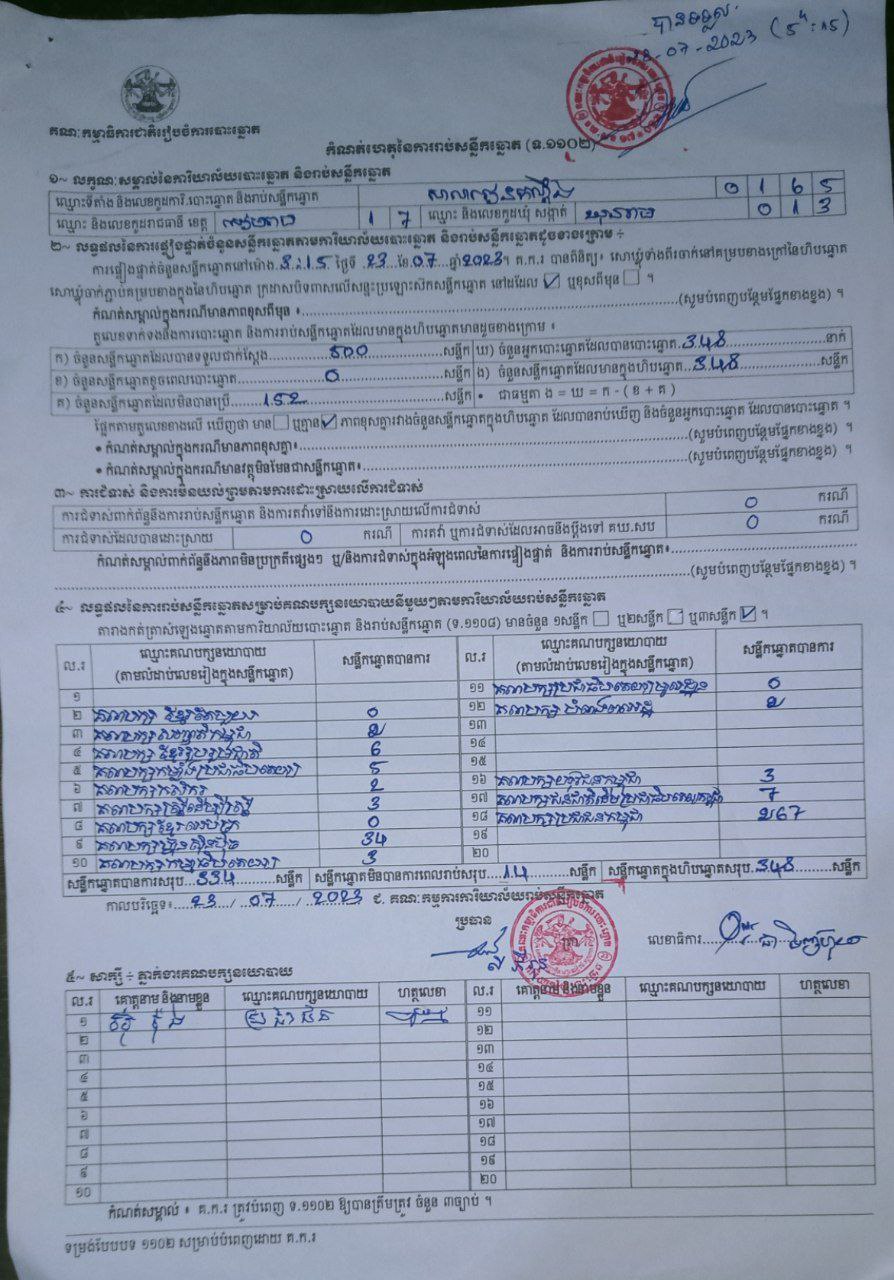 បានទទួល
23-07-2023 (5:15)
គណៈកម្មាធិការជាតិរៀបចំការបោះឆ្នោត
កំណត់ហេតុនៃការរាប់សន្លឹកឆ្នោត (ទ.១១០២)
១~ លក្ខណៈសម្គាល់នៃការិយាល័យបោះឆ្នោត និងរាប់សន្លឹកឆ្នោត
ឈ្មោះទីតាំង និងលេខកូដការិ.បោះឆ្នោត និងរាប់សន្លឹកឆ្នោត 0 1 6 5
ឈ្មោះ និងលេខកូដរាជធានី ខេត្ត 1 7 ឈ្មោះ និងលេខកូដឃុំ សង្កាត់ 0 1 3
២~ លទ្ធផលនៃការផ្ទៀងផ្ទាត់ចំនួនសន្លឹកឆ្នោតតាមការិយាល័យបោះឆ្នោត និងរាប់សន្លឹកឆ្នោតដូចខាងក្រោម ÷
ការផ្ទៀងផ្ទាត់ចំនួនសន្លឹកឆ្នោតនៅម៉ោង.3:15 ថ្ងៃទី 23 ខែ 07 ឆ្នាំ 2023។ គ.ក.រ បានពិនិត្យ៖ សោឃ្លុំទាំងពីរចាក់នៅគម្របខាងក្រៅនៃហិបឆ្នោត
សោឃ្លុំចាក់ភ្ជាប់គម្របខាងក្នុងនៃហិបឆ្នោត ក្រដាសបិទពាសលើសន្ទះប្រឡោះស៊កសន្លឹកឆ្នោត នៅដដែល ☑ ឬខុសពីមុន ☐ ។
កំណត់សម្គាល់ក្នុងករណីមានភាពខុសពីមុន ៖ (សូមបំពេញបន្ថែមផ្នែកខាងខ្នង) ។
តួលេខទាក់ទងនឹងការបោះឆ្នោត និងការរាប់សន្លឹកឆ្នោតដែលមានក្នុងហិបឆ្នោតមានដូចខាងក្រោម ៖
ក) ចំនួនសន្លឹកឆ្នោតដែលបានទទួលជាក់ស្តែង 500 សន្លឹក ឃ) ចំនួនអ្នកបោះឆ្នោតដែលបានបោះឆ្នោត 348 នាក់
ខ) ចំនួនសន្លឹកឆ្នោតខូចពេលបោះឆ្នោត 0 សន្លឹក ង) ចំនួនសន្លឹកឆ្នោតដែលមានក្នុងហិបឆ្នោត 348 សន្លឹក
គ) ចំនួនសន្លឹកឆ្នោតដែលមិនបានប្រើ 152 សន្លឹក • ជាធម្មតា ង = ឃ = ក - ( ខ + គ )
ផ្អែកតាមតួលេខខាងលើ ឃើញថា មាន ☐ ឬគ្មាន ☑ ភាពខុសគ្នារវាងចំនួនសន្លឹកឆ្នោតក្នុងហិបឆ្នោត ដែលបានរាប់ឃើញ និងចំនួនអ្នកបោះឆ្នោត ដែលបានបោះឆ្នោត ។
• កំណត់សម្គាល់ក្នុងករណីមានភាពខុសគ្នា៖ (សូមបំពេញបន្ថែមផ្នែកខាងខ្នង) ។
• កំណត់សម្គាល់ក្នុងករណីមានវត្ថុមិនមែនជាសន្លឹកឆ្នោត៖ (សូមបំពេញបន្ថែមផ្នែកខាងខ្នង) ។
៣~ ការជំទាស់ និងការមិនយល់ព្រមតាមការដោះស្រាយលើការជំទាស់
ការជំទាស់ពាក់ព័ន្ធនឹងការរាប់សន្លឹកឆ្នោត និងការតវ៉ាទៅនឹងការដោះស្រាយលើការជំទាស់ 0 ករណី
ការជំទាស់ដែលបានដោះស្រាយ 0 ករណី ការតវ៉ា ឬការជំទាស់ដែលអាចនឹងប្តឹងទៅ គឃ.សប 0 ករណី
កំណត់សម្គាល់ពាក់ព័ន្ធនឹងភាពមិនប្រក្រតីផ្សេងៗ ឬ/និងការជំទាស់ក្នុងអំឡុងពេលនៃការផ្ទៀងផ្ទាត់ និងការរាប់សន្លឹកឆ្នោត៖
(សូមបំពេញបន្ថែមផ្នែកខាងខ្នង) ។
៤~ លទ្ធផលនៃការរាប់សន្លឹកឆ្នោតសម្រាប់គណបក្សនយោបាយនីមួយៗតាមការិយាល័យរាប់សន្លឹកឆ្នោត
តារាងកត់ត្រាសំឡេងឆ្នោតតាមការិយាល័យបោះឆ្នោត និងរាប់សន្លឹកឆ្នោត (ទ.១១០៨) មានចំនួន ១សន្លឹក ☐ ឬ២សន្លឹក ☐ ឬ៣សន្លឹក ☑ ។
ល.រ ឈ្មោះគណបក្សនយោបាយ (តាមលំដាប់លេខរៀងក្នុងសន្លឹកឆ្នោត) សន្លឹកឆ្នោតបានការ ល.រ ឈ្មោះគណបក្សនយោបាយ (តាមលំដាប់លេខរៀងក្នុងសន្លឹកឆ្នោត) សន្លឹកឆ្នោតបានការ
១ ១១ គណបក្សប្រជាធិបតេយ្យមូលដ្ឋាន 0
២ 0 ១២ 2
៣ 2 ១៣
៤ គណបក្សខ្មែររួបរួមជាតិ 6 ១៤
៥ គណបក្សកម្លាំងប្រជាធិបតេយ្យ 5 ១៥
៦ គណបក្សកសិករ 2 ១៦ គណបក្សយុវជនកម្ពុជា 3
៧ គណបក្សស្ត្រីដើម្បីស្ត្រី 3 ១៧ គណបក្សជនជាតិដើមប្រជាធិបតេយ្យកម្ពុជា 7
៨ គណបក្សខ្មែរឈប់ក្រ 0 ១៨ គណបក្សប្រជាជនកម្ពុជា 267
៩ គណបក្សហ៊្វុនស៊ិនប៉ិច 34 ១៩
១០ 3 ២០
សន្លឹកឆ្នោតបានការសរុប 334 សន្លឹក សន្លឹកឆ្នោតមិនបានការពេលរាប់សរុប 14 សន្លឹក សន្លឹកឆ្នោតក្នុងហិបឆ្នោតសរុប 348 សន្លឹក
កាលបរិច្ឆេទ៖ 23 / 07 / 2023 ជ. គណៈកម្មការការិយាល័យរាប់សន្លឹកឆ្នោត
ប្រធាន
លេខាធិការ
៥~ សាក្សី ÷ ភ្នាក់ងារគណបក្សនយោបាយ
ល.រ គោត្តនាម និងនាមខ្លួន ឈ្មោះគណបក្សនយោបាយ ហត្ថលេខា ល.រ គោត្តនាម និងនាមខ្លួន ឈ្មោះគណបក្សនយោបាយ ហត្ថលេខា
១ ប្រជាជន ១១
២ ១២
៣ ១៣
៤ ១៤
៥ ១៥
៦ ១៦
៧ ១៧
៨ ១៨
៩ ១៩
១០ ២០
កំណត់សម្គាល់ ៖ គ.ក.រ ត្រូវបំពេញ ទ.១១០២ ឱ្យបានត្រឹមត្រូវ ចំនួន ៣ច្បាប់ ។
ទម្រង់បែបបទ ១១០២ សម្រាប់បំពេញដោយ គ.ក.រ